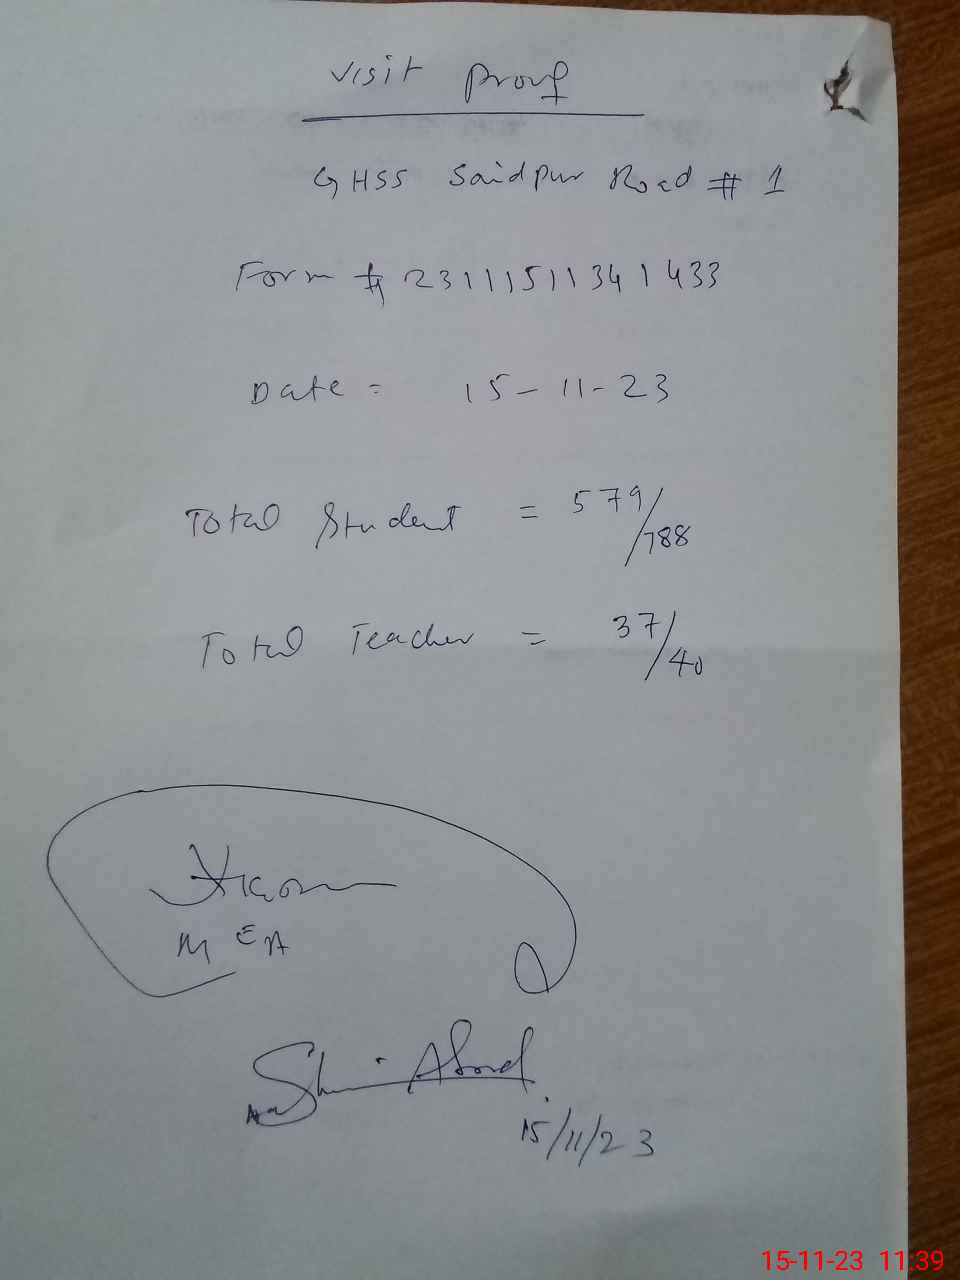 Visit Prouf
GHSS Saidpur Road # 1
Form # 23111511341433
Date = 15-11-23
Total Student = 579/788
Total Teacher = 37/40
MEA
15/11/23
15-11-23 11:39